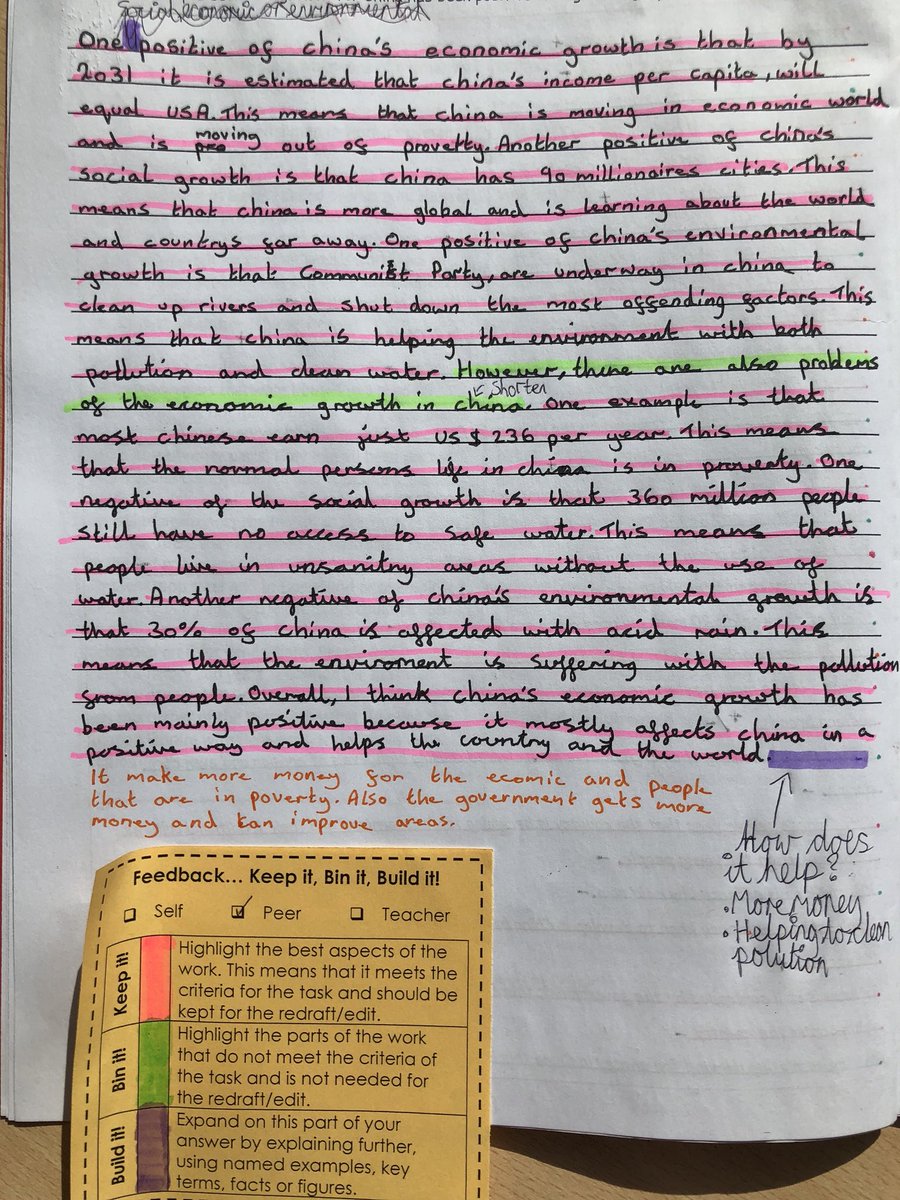 Social, economic or environmental
One positive of china's economic growth is that by
2031 it is estimated that china's income per capita, will
equal USA. This means that china is moving in economic world
and is moving out of provetty. Another positive of china's
social growth is that china has 90 millionaires cities. This
means that china is more global and is learning about the world
and countrys far away. One positive of china's environmental
growth is that Communist Party, are underway in china to
clean up rivers and shut down the most offending factors. This
means that china is helping the environment with both
pollution and clean water. However, there are also problems
of the economic growth in china. One example is that
Shorten
most chinese earn just US $ 236 per year. This means
that the normal persons life in china is in proveaty. One
negative of the social growth is that 360 million people
still have no access to safe water. This means that
people live in unsanitry areas without the use of
water. Another negative of china's environmental growth is
that 30% of china is affected with acid rain. This
means that the enviroment is suffering with the pollution
from people. Overall, I think china's economic growth has
been mainly positive because it mostly affects china in a
positive way and helps the country and the world.
It make more money for the ecomic and people
that are in poverty. Also the government gets more
money and can improve areas.
How does
it help?
• More money
• Helping to clean
polution
Feedback... Keep it, Bin it, Build it!
Self Peer Teacher
Keep it!
Highlight the best aspects of the
work. This means that it meets the
criteria for the task and should be
kept for the redraft/edit.
Bin it!
Highlight the parts of the work
that do not meet the criteria of
the task and is not needed for
the redraft/edit.
Build it!
Expand on this part of your
answer by explaining further,
using named examples, key
terms, facts or figures.